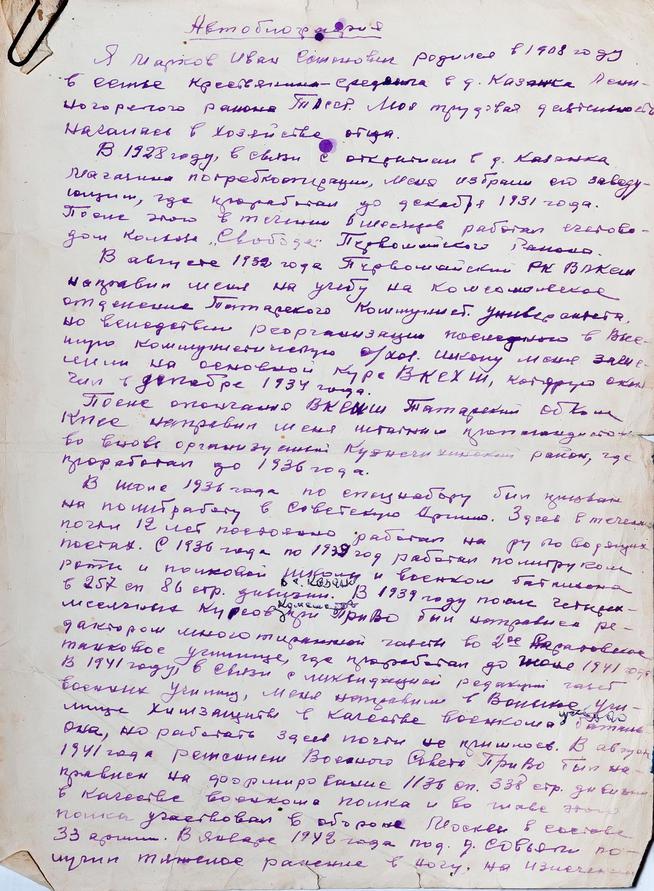 Автобиография
Я Марков Иван Семенович родился в 1908 году
в семье крестьянина-середняка в д. Казанка Лени-
ногорского района ТАССР. Моя трудовая деятельность
началась в хозяйстве отца.
В 1928 году, в связи с открытием в д. Казанка
магазина потребкооперации, меня избрали его заведу-
ющим, где проработал до декабря 1931 года.
После этого в течении 6 месяцев работал счетово-
дом колхоза „Свобода" Первомайского района.
В августе 1932 года Первомайский РК ВЛКСМ
направил меня на учебу на комсомольское
отделение Татарского Коммунист. университета.
но вследствии реорганизации последнего в Выс-
шую коммунистическую с/хоз. школу меня зачи-
слили на основной курс ВКСХШ, которую окон-
чил в декабре 1934 года.
После окончания ВКСХШ Татарский обком
КПСС направил меня штатным пропагандистом
во вновь организуемый Кузнечихинский район, где
проработал до 1936 года.
В июне 1936 года по спецнабору был призван
на политработу в Советскую Армию. Здесь в течени
почти 12 лет постоянно работал на руководящих
постах. С 1936 года по 1939 год работал политруком
роты и полковой школы и военком батальона
в 257 сп 86 стр. дивизии в г. Казани. В 1939 году после четырех-
месячных курсов при ПриВО был направлен ре-
дактором многотиражной газеты во 2ое Саратовское
танковое училище, где проработал до июня 1941 года.
В 1941 году, в связи с ликвидацией редакций газет
военных училищ, меня направили в Вольское учи-
лище Химзащиты в качестве военкома батальи-
она, но работать здесь почти не пришлось. В августе
1941 года решением Военного Совета ПриВО был на-
правлен на формирование 1136 сп. 338 стр. дивизии
в качестве военкома полка и во главе этого
полка участвовал в обороне Москвы в составе
33 армии. В январе 1942 года под. д. по-
лучил тяжелое ранение в ногу. На излечении